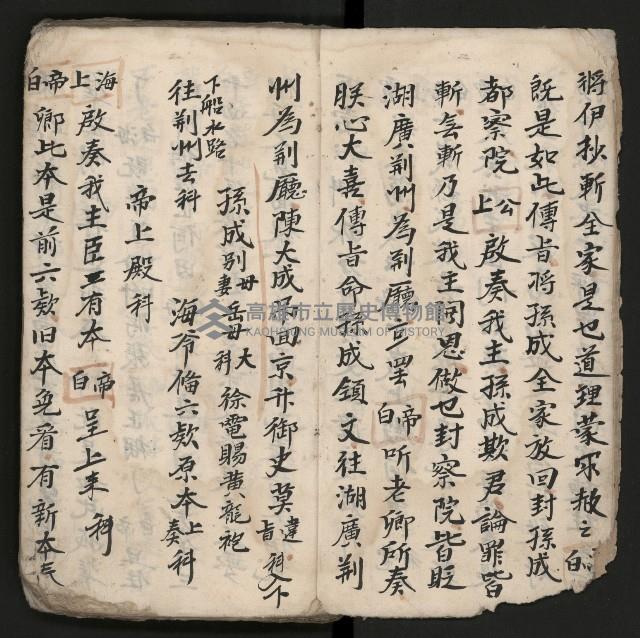 將伊抄斬全家是乜道理蒙求赦之白帝
既是如此傳旨將孫成全家放回封孫成
都察院 公上 啟奏我主孫成欺君論罪皆
斬免斬乃是我主同恩做乜封察院皆貶
湖廣荆州為荆廳可罢 帝白 听老卿所奏
朕心大喜傳旨命孫成領文往湖廣荆
州為荆廳陳大成 回京升御史莫違旨 科 下
下船水路 孫成別母妻 岳母大科 徐電賜黄龍袍
往荆州去科 海 俻六欵原本上奏科
帝上殿科
海上 啟奏我主臣 有本 帝白 呈上来 科
帝白 卿此本是前六欵旧本免看有新本
高雄市立歷史博物館
KAOHSIUNG MUSEUM OF HISTORY